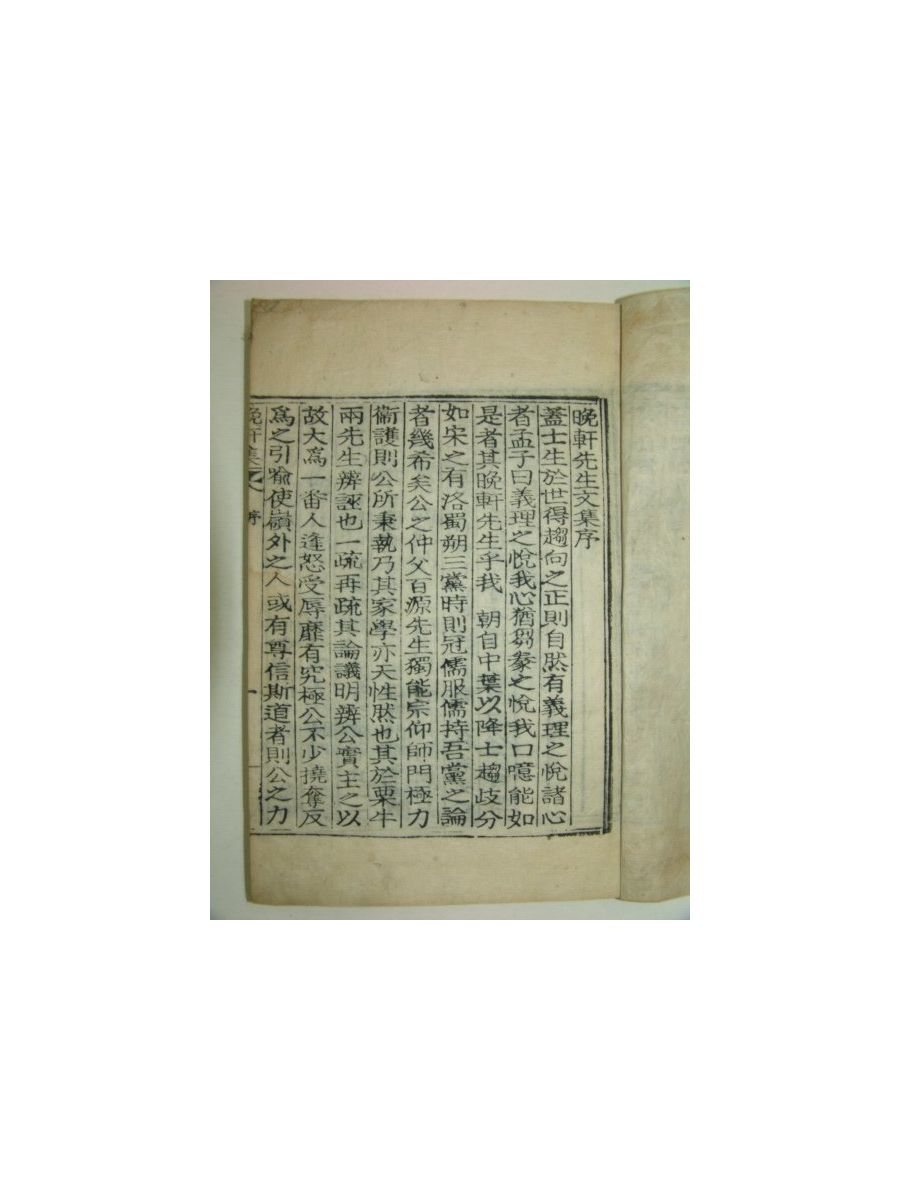 晚軒先生文集序
蓋士生於世得趨向之正則自然有義理之悅諸心
者孟子曰義理之悅我心猶芻豢之悅我口噫能如
是者其晚軒先生乎我 朝自中葉以降士趨歧分
如宋之有洛蜀朔三黨時則冠儒服儒持吾黨之論
者幾希矣公之仲父百源先生獨能宗仰師門極力
衛護則公所秉執乃其家學亦天性然也其於栗牛
兩先生辨誣也一疏再疏其論議明辨公實主之以
故大爲一番人逢怒受辱靡有究極公不少撓奪反
爲之引喻使嶺外之人或有尊信斯道者則公之力
晚軒集 序 一